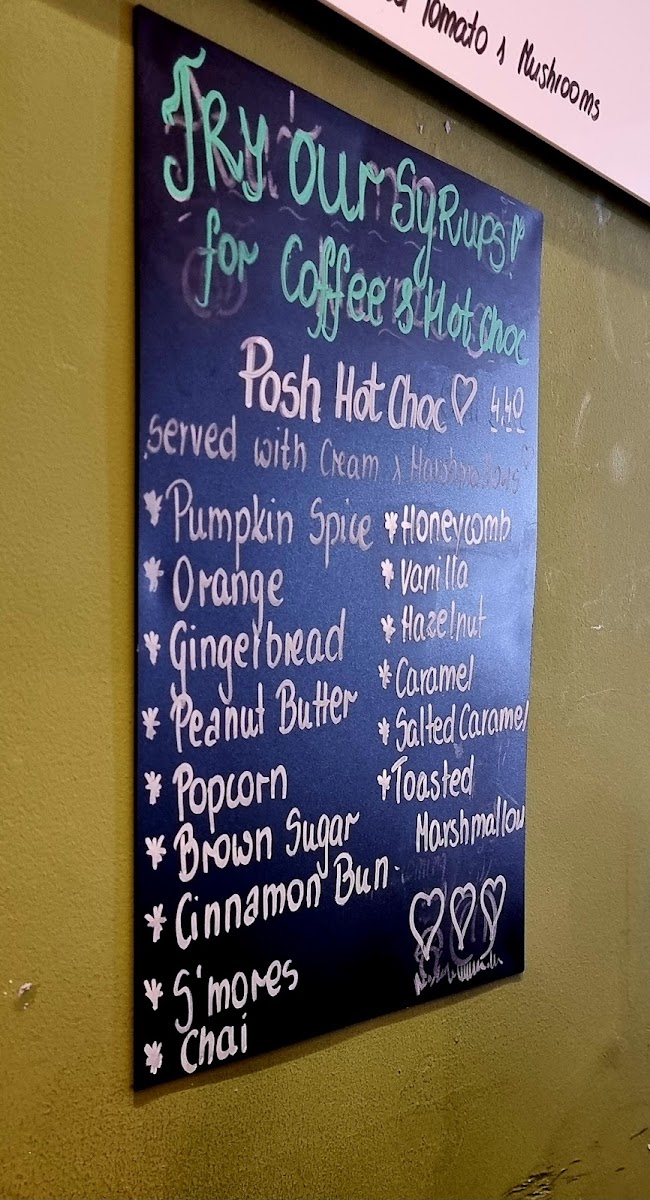 Tomato & Mushrooms
Try our Syrups
for Coffee & Hot Choc
Posh Hot Choc 4.40
served with Cream & Marshmallows
* Pumpkin Spice
* Orange
* Gingerbread
* Peanut Butter
* Popcorn
* Brown Sugar
* Cinnamon Bun
* S'mores
* Chai
* Honeycomb
* Vanilla
* Hazelnut
* Caramel
* Salted Caramel
* Toasted
Marshmallow